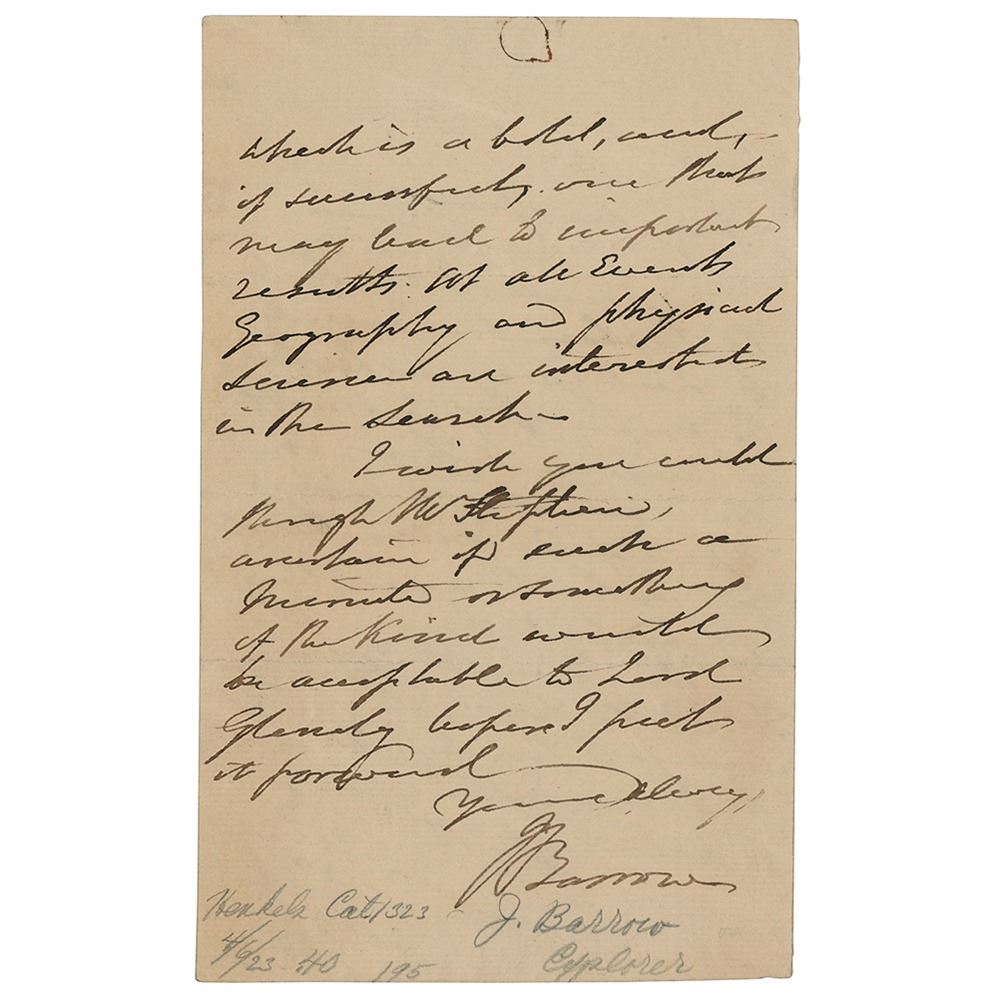 which is a bold, and,
if successful, one that
may lead to important
results. At all Events
Geography and physical
science are interested
in the Search —
I wish you could
through Mr Stephen,
ascertain if such a
Minute or something
of the Kind would
be acceptable to Lord
Glenelg before I put
it forward
Yours Always,
J Barrow
Henkels Cat 1323
J. Barrow
4/6/23 .40 195
Explorer